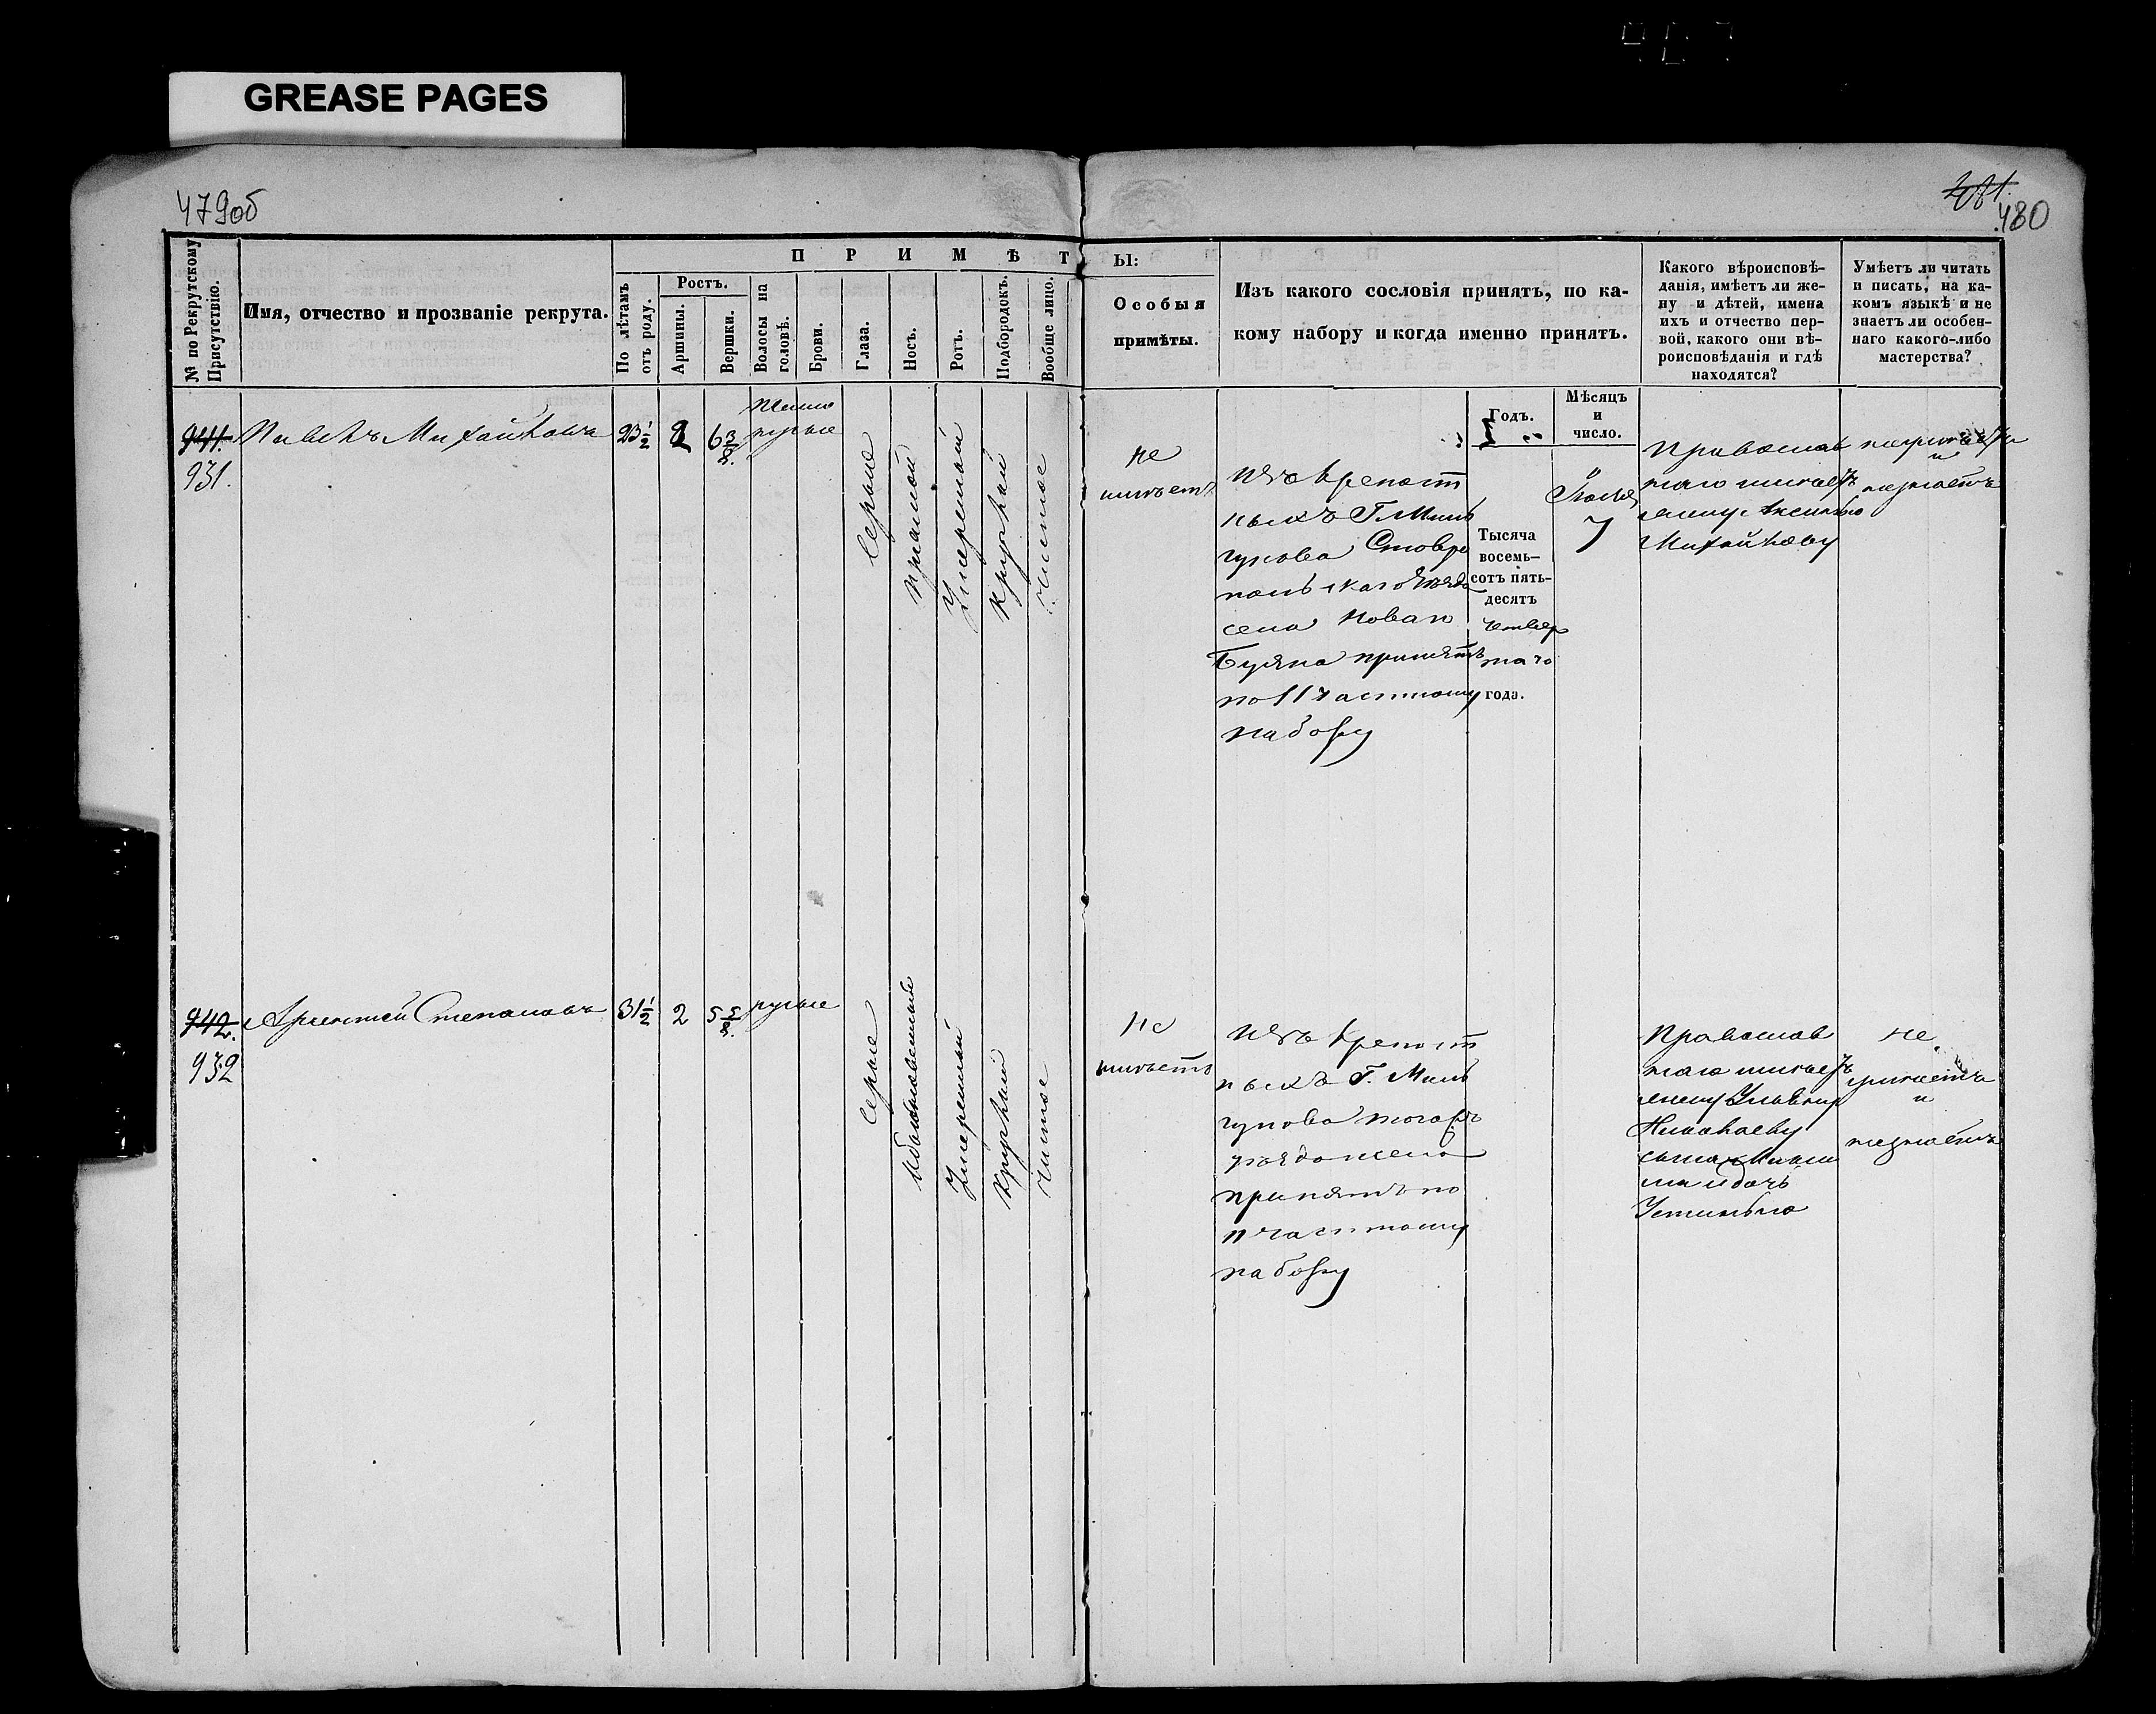 GREASE PAGES
479об
481
480
№ по Рекрутскому Присутствію.
Имя, отчество и прозваніе рекрута.
ПРИМѢТЫ:
По лѣтамъ отъ роду.
Ростъ.
Аршины.
Вершки.
Волосы на головѣ.
Брови.
Глаза.
Носъ.
Ротъ.
Подбородокъ.
Вообще лицо.
Особыя
примѣты.
Изъ какого сословія принятъ, по ка-
кому набору и когда именно принятъ.
Какого вѣроисповѣ-
данія, имѣетъ ли же-
ну и дѣтей, имена
ихъ и отчество пер-
вой, какого они вѣ-
роисповѣданія и гдѣ
находятся?
Умѣетъ ли читать
и писать, на ка-
комъ языкѣ и не
знаетъ ли особен-
наго какого-либо
мастерства?
Годъ.
Мѣсяцъ
и
число.
941.
931.
Михайловъ
23 1/2
2
6 3/8.
темно
русые
серые
прямой
умеренный
круглый
чистое
не
имѣетъ
изъ крепост
ныхъ Г. Миль
гунова Ставро
польскаго уѣзда
села Новаго
Буяна принятъ
по 11 частному
набору
Тысяча
восемь-
сотъ пять-
десятъ
четвер
таго
года.
7
Православ
наго имѣетъ
жену Аксинью
Михайлову
и
незнаетъ
942.
932
Степановъ
31 1/2
2
5 5/8.
русые
серые
обыкновенный
умеренный
круглый
чистое
не
имѣетъ
изъ крепост
ныхъ Г. Миль
гунова тогожъ
уѣзда и села
принятъ по
11 частному
набору
Православ
наго имѣетъ
жену
Николаеву
сына
и дочь
Устинью
не
и
незнаетъ